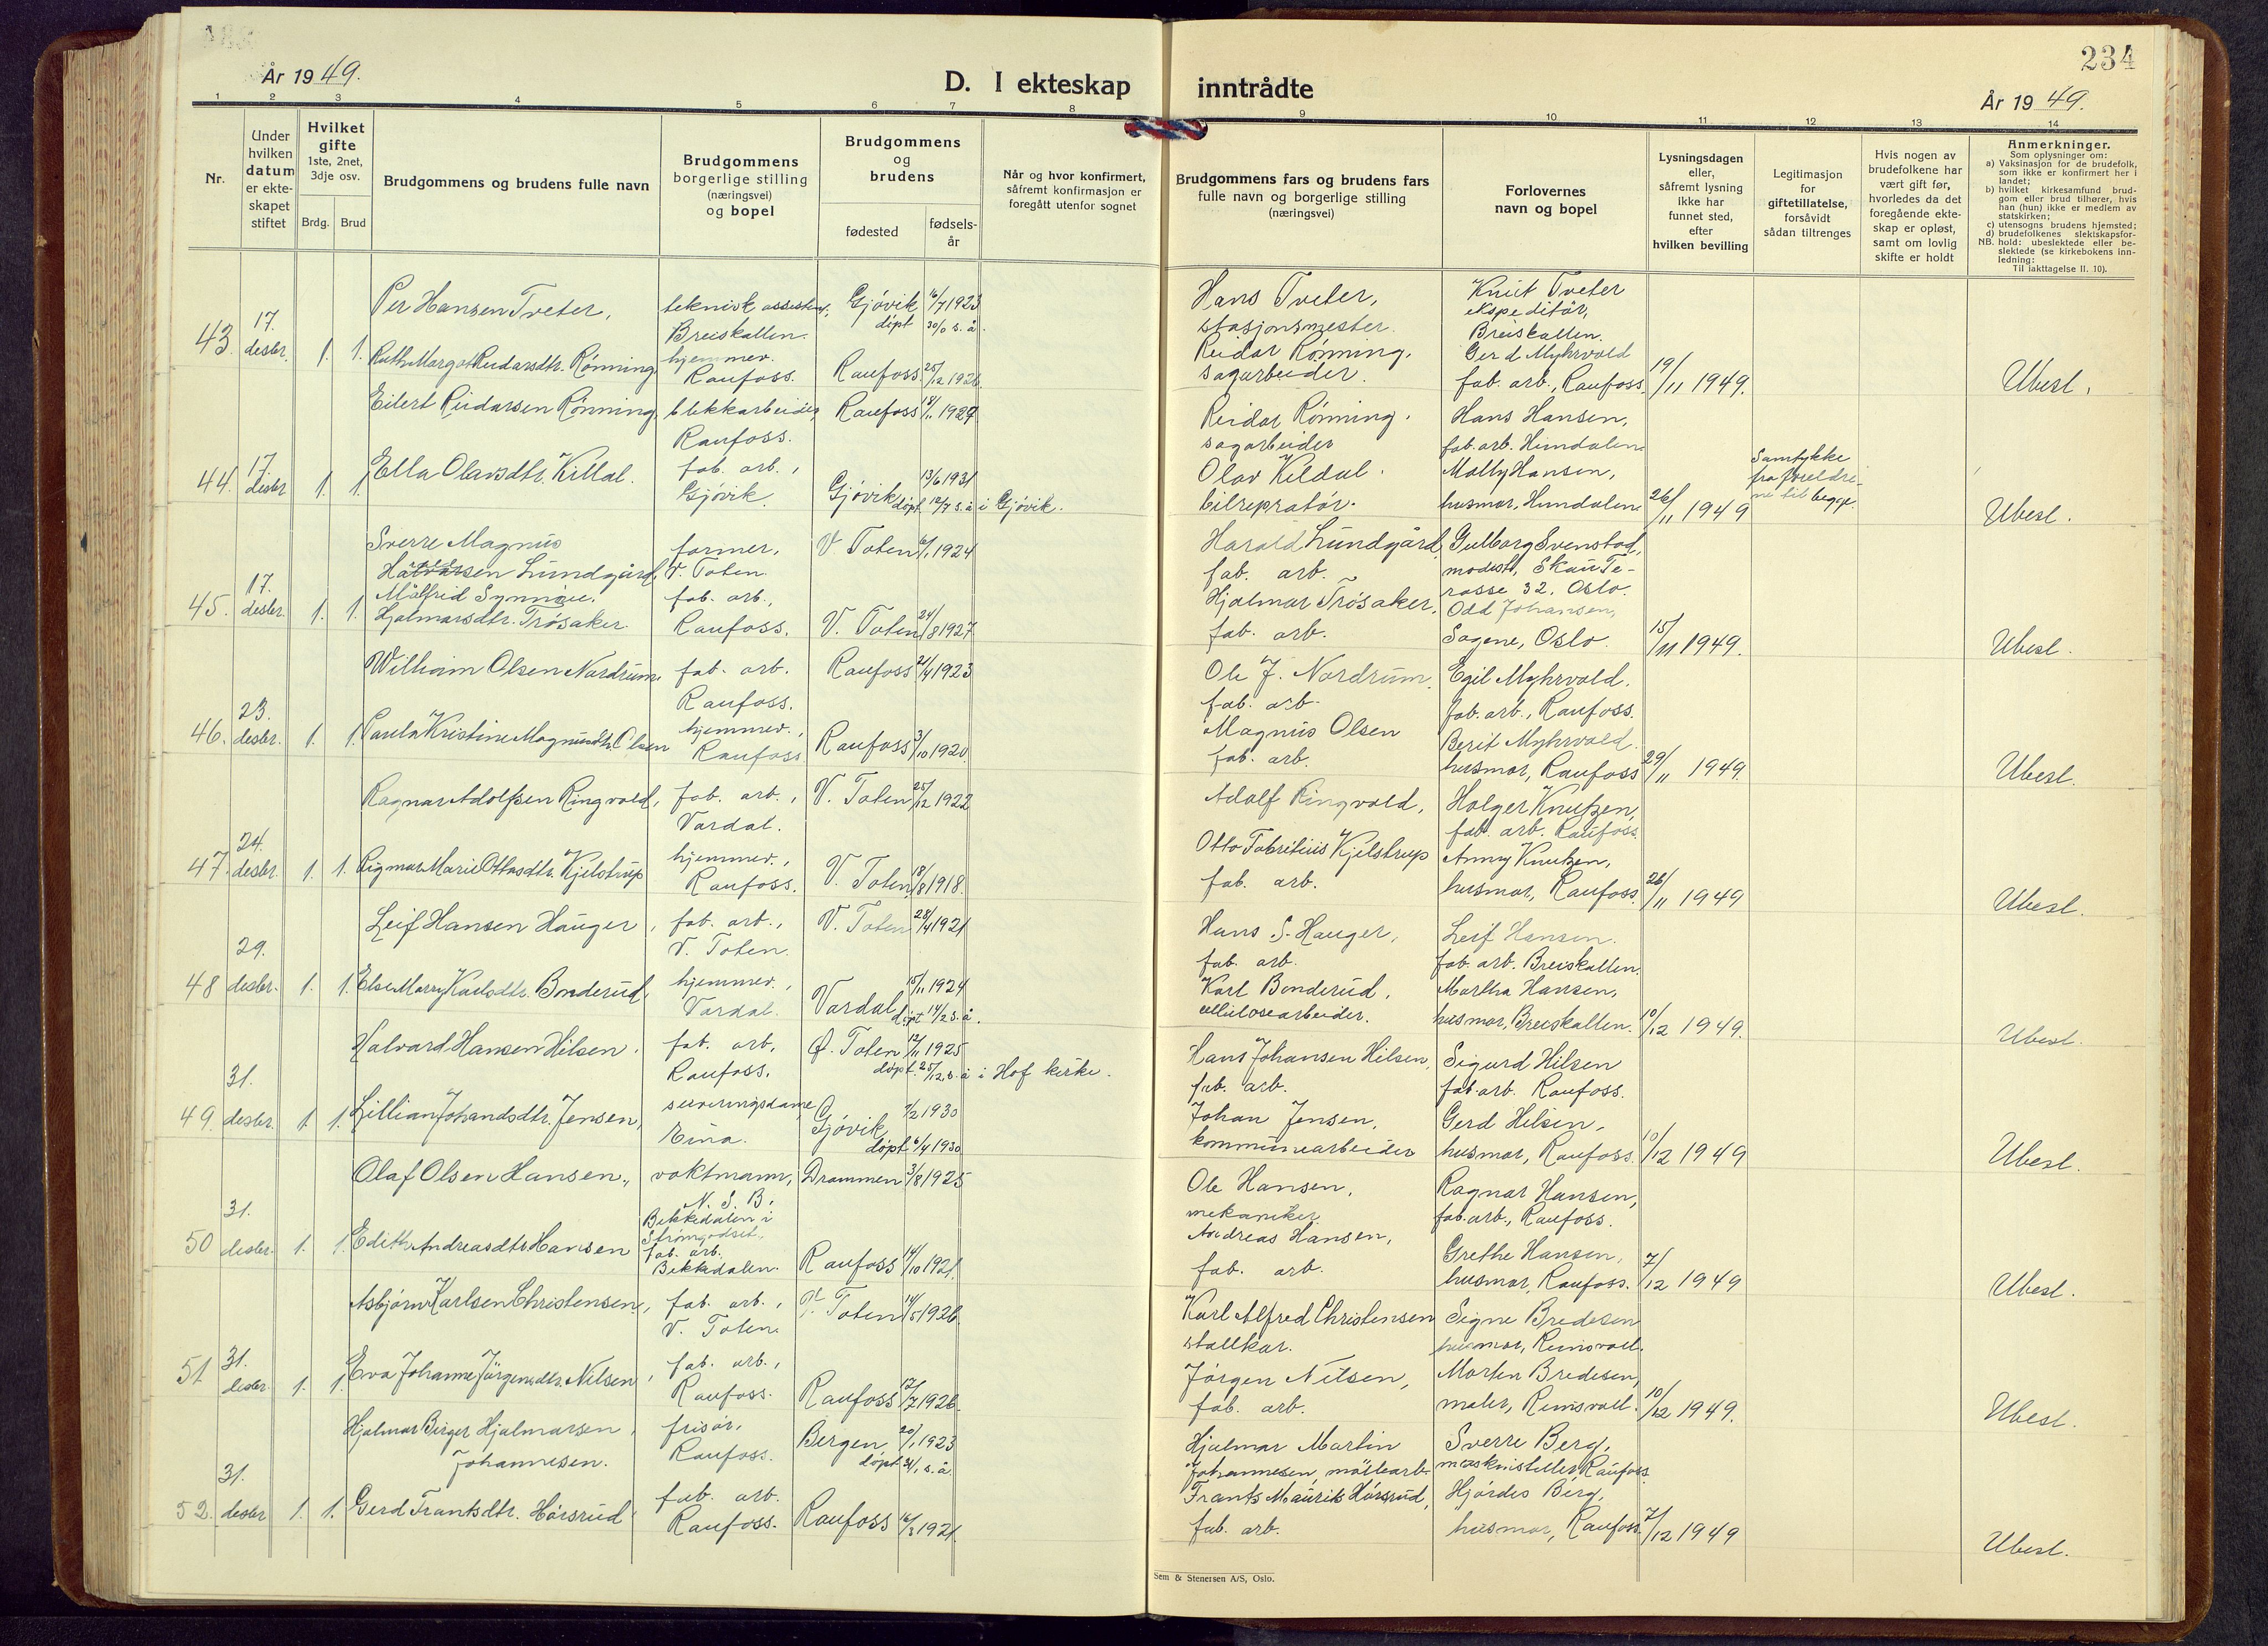 234
År 1949.
D. I ekteskap inntrådte
År 1949.
1 2 3 4 5 6 7 8 9 10 11 12 13 14
Nr.
Under hvilken datum er ekteskapet stiftet
Hvilket gifte
1ste, 2net, 3dje osv.
Brdg. Brud
Brudgommens og brudens fulle navn
Brudgommens borgerlige stilling (næringsvei) og bopel
Brudgommens og brudens
fødested
fødselsår
Når og hvor konfirmert, såfremt konfirmasjon er foregått utenfor sognet
Brudgommens fars og brudens fars fulle navn og borgerlige stilling (næringsvei)
Forlovernes navn og bopel
Lysningsdagen eller, såfremt lysning ikke har funnet sted, efter hvilken bevilling
Legitimasjon for giftetillatelse, forsåvidt sådan tiltrenges
Hvis nogen av brudefolkene har vært gift før, hvorledes da det foregående ekteskap er opløst, samt om lovlig skifte er holdt
Anmerkninger.
Som oplysninger om:
a) Vaksinasjon for de brudefolk, som ikke er konfirmert her i landet;
b) hvilket kirkesamfund brudgom eller brud tilhører, hvis han (hun) ikke er medlem av statskirken;
c) utensogns brudens hjemsted;
d) brudefolkenes slektskapsforhold: ubeslektede eller beslektede (se kirkebokens innledning:
NB.
Til iakttagelse II. 10).
43. 17. desbr. 1. 1.
Per Hansen Tveter, teknisk assistent, Breiskallen. Gjøvik 16/7 1923 døpt 30/9 s.å.
Ruth Margot Reidarsdtr. Rønning hjemmev. Raufoss. Raufoss 25/12 1926
Hans Tveter, stasjonsmester.
Reidar Rønning, sagarbeider.
Knut Tveter ekspeditør, Breiskallen.
Gerd Myhrvold fab. arb., Raufoss.
19/11 1949.
Ubesl.
44. 17. desbr 1. 1.
Eilert Reidarsen Rønning, blikkarbeider, Raufoss. Raufoss 18/11 1927
Ella Olavsdtr. Kildal. fab. arb., Gjøvik. Gjøvik 13/6 1931 døpt 12/7 s.å i Gjøvik.
Reidar Rønning. sagarbeider
Olav Kildal. bilrepratør.
Hans Hansen, fab. arb. Hundalen
Molly Hansen, husmor, Hundalen
26/11 1949
Samtykke fra foreldrene til begge.
Ubesl.
45. 17. desbr. 1. 1.
Sverre Magnus Haraldsen Lundgård, former, V. Toten. V Toten 6/1 1924
Målfrid Synnøve Hjalmarsdtr. Trøsaker. fab. arb., Raufoss. V. Toten 24/8 1927
Harald Lundgård, fab. arb.
Hjalmar Trøsaker, fab. arb.
Gulborg Svenstad, modist, Skau Terasse 32. Oslo.
Odd Johansen, Sagene, Oslo.
15/11 1949.
Ubesl.
46. 23. desbr. 1. 1.
William Olsen Nordrum, fab. arb. Raufoss. Raufoss 21/4 1923
Paula Kristine Magnusdtr. Olsen hjemmev., Raufoss Raufoss 3/10 1920
Ole J. Nordrum, fab. arb.
Magnus Olsen fab. arb.
Egil Myhrvold. fab. arb., Raufoss.
Berit Myhrvold. husmor, Raufoss
29/11 1949.
Ubesl.
47. 24. desbr. 1. 1.
Ragnar Adolfsen Ringvold, fab. arb., Vardal. V. Toten 25/12 1922
Rigmor Marie Ottosdtr. Kjelstrup hjemmev., Raufoss. V. Toten 18/8 1918.
Adolf Ringvold,
Otto Fabritius Kjelstrup fab. arb.
Holger Knutzen, fab. arb. Raufoss.
Anny Knutzen, husmor, Raufoss.
26/11 1949
Ubesl.
48 29. desbr. 1. 1.
Leif Hansen Hauger, fab. arb., V. Toten. V. Toten 28/4 1921
Else Marry Karlsdtr. Bonderud, hjemmev., Vardal. Vardal 15/11 1924 døpt 14/2 s.å.
Hans S. Hauger, fab. arb.
Karl Bonderud, cellulosearbeider.
Leif Hansen. fab. arb. Breiskallen.
Martha Hansen, husmor, Breiskallen.
10/12 1949.
Ubesl.
49. 31. desbr. 1 1.
Halvard Hansen Hilsen. fab. arb, Raufoss. Ø. Toten 17/11 1925 døpt 25/12. s. å i Hof kirke.
Lillian Johansdtr. Jensen, serveringsdame Eina. Gjøvik 7/2 1930 døpt 6/4 1930
Hans Johansen Hilsen, fab. arb.
Johan Jensen, kommunearbeider
Sigurd Hilsen fab arb. Raufoss.
Gerd Hilsen, husmor, Raufoss.
10/12 1949
Ubesl.
50 31. desbr. 1. 1.
Olaf Olsen Hansen, vaktmann, N. S. B. Bekkedalen i Strømgodset, Drammen 3/8 1925
Edith Andreasdtr Hansen fab. arb. Bekkedalen. Raufoss 14/10 1921.
Ole Hansen, mekaniker.
Andreas Hansen, fab. arb.
Ragnar Hansen, fab. arb., Raufoss.
Grethe Hansen, husmor, Raufoss.
7/12 1949
Ubesl.
51 31. desbr. 1. 1.
Asbjørn Karlsen Christensen, fab. arb., V. Toten. V. Toten 14/5 1926.
Eva Johanne Jørgensdtr. Nilsen, fab. arb., Raufoss. Raufoss 12/7 1926.
Karl Alfred Christensen stallkar.
Jørgen Nilsen, fab. arb.
Signe Bredesen husmor, Reinsvoll.
Morten Bredesen, maler, Reinsvoll.
10/12 1949.
Ubesl.
52. 31. desbr 1. 1.
Hjalmar Birger Hjalmarsen Johannesen. frisør, Raufoss. Bergen 20/1 1923 døpt 31/1 s.å.
Gerd Frantsdtr. Hørsrud fab. arb. Raufoss. Raufoss 16/3 1921.
Hjalmar Martin Johannesen, møllearb.
Frants Mauritz Hørsrud, fab. arb.
Sverre Berg, maskinstiller, Raufoss.
Hjørdis Berg, husmor, Raufoss
7/12 1949
Ubesl.
Sem & Stenersen A/S, Oslo.